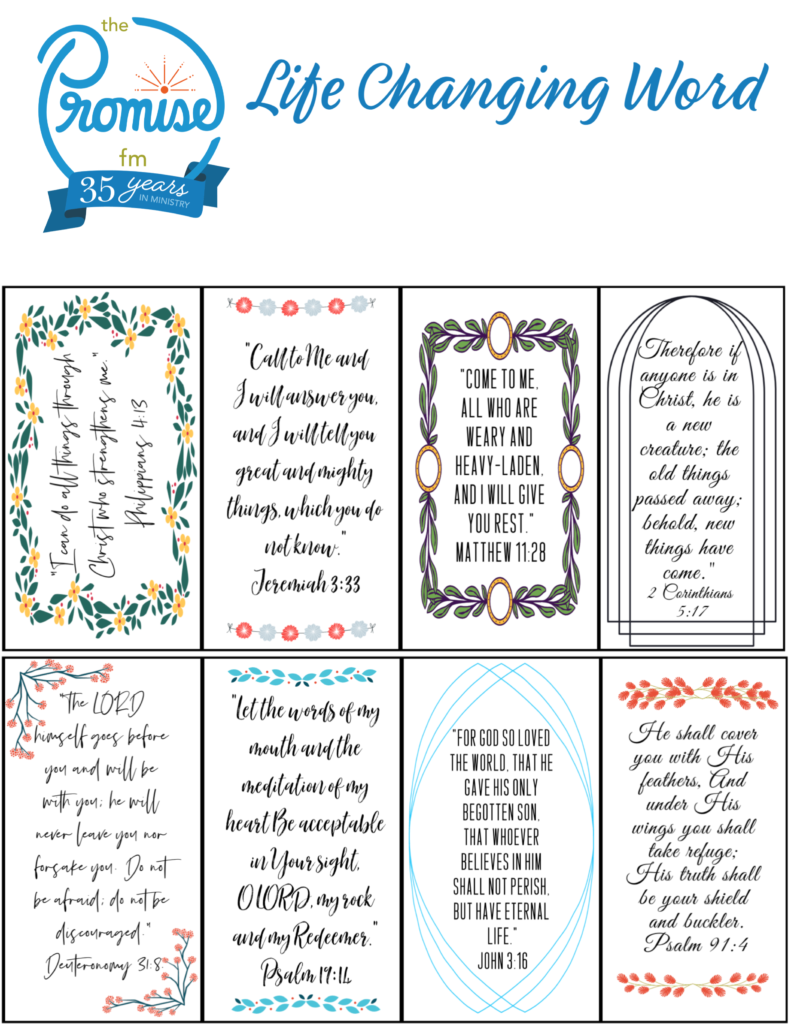 the
Promise
fm
35 years
IN MINISTRY
Life Changing Word
"I can do all things through
Christ who strengthens me."
Philippians 4:13
"Call to Me and
I will answer you,
and I will tell you
great and mighty
things, which you do
not know."
Jeremiah 3:33
"COME TO ME,
ALL WHO ARE
WEARY AND
HEAVY-LADEN,
AND I WILL GIVE
YOU REST."
MATTHEW 11:28
Therefore if
anyone is in
Christ, he is
a new
creature; the
old things
passed away;
behold, new
things have
come."
2 Corinthians
5:17
"The LORD
himself goes before
you and will be
with you; he will
never leave you nor
forsake you. Do not
be afraid; do not be
discouraged."
Deuteronomy 31:8
"Let the words of my
mouth and the
meditation of my
heart Be acceptable
in Your sight,
O LORD, my rock
and my Redeemer."
Psalm 19:14
"FOR GOD SO LOVED
THE WORLD, THAT HE
GAVE HIS ONLY
BEGOTTEN SON,
THAT WHOEVER
BELIEVES IN HIM
SHALL NOT PERISH,
BUT HAVE ETERNAL
LIFE."
JOHN 3:16
He shall cover
you with His
feathers, And
under His
wings you shall
take refuge;
His truth shall
be your shield
and buckler.
Psalm 91:4